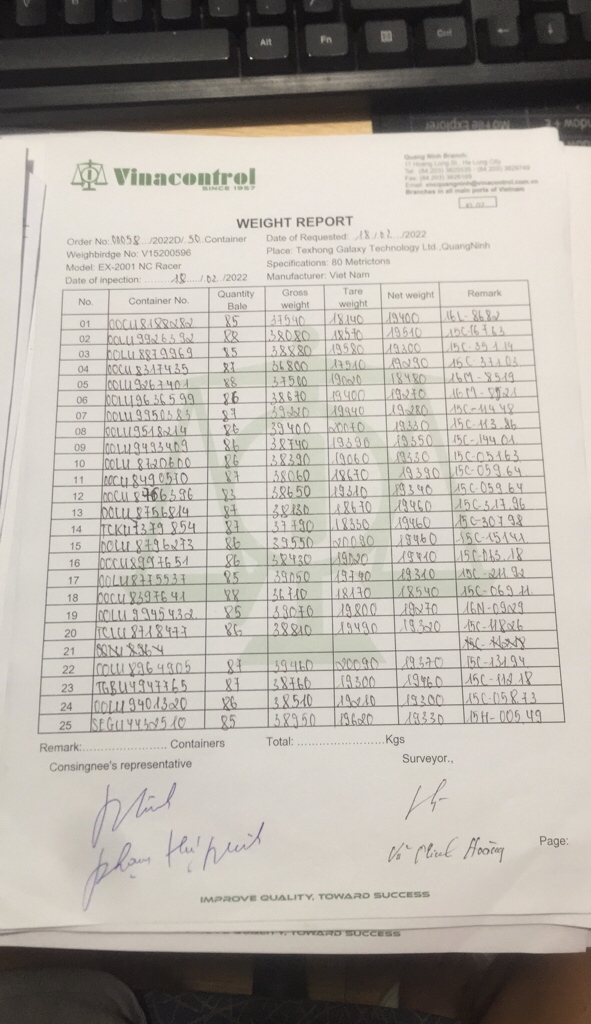 Alt
Fn
Ctrl
Quang Ninh Branch:
Vinacontrol
SINCE 1957
Branches in all main ports of Vietnam
WEIGHT REPORT
Order No: 00058 /2022D/ 50 Container Date of Requested: 18/02 /2022
Weighbirdge No: V15200596 Place: Texhong Galaxy Technology Ltd.,QuangNinh
Model: EX-2001 NC Racer Specifications: 80 Metrictons
Date of inpection: 18 / 02 /2022 Manufacturer: Viet Nam
No. Container No. Quantity Bale Gross weight Tare weight Net weight Remark
01 OOCU8188282 85 37540 18140 19400 16L-8682
02 OOLU9926392 88 38080 18570 19510 15C-16763
03 OOLU8879969 85 38880 19580 19300 15C-35114
04 OOCU8317435 87 36800 17510 19290 15C-37103
05 OOLU9267401 88 37500 19020 18480 16M-8519
06 OOLU9636599 86 38670 19400 19270
07 OOLU9950583 87 39220 19940 19280 15C-114.48
08 OOLU9518214 86 39400 20070 19330 15C-113.86
09 OOLU9493409 86 38740 19390 19350 15C-144.01
10 OOLU8720600 86 38390 19060 19330 15C-05163
11 OOCU8490570 87 38060 18670 19390 15C-059.64
12 83 38650 19310 19340 15C-059.64
13 OOLU8756814 87 38130 18670 19460 15C-317.96
14 TCKU7379854 87 37790 18330 19460 15C-307.98
15 OOLU8796273 86 39550 20090 19460 15C-15141
16 OOCU8997651 86 38430 19020 19410
17 OOLU8775537 85 39050 19740 19310
18 OOCU8397641 88 36710 18170 18540
19 OOLU9945432 85 39070 19800 19270 16N-0929
20 TCLU8718477 86 38810 19490 19320 15C-11826
21
22 OOLU8964905 87 39460 20090 19370 15C-13194
23 TGBU4947765 87 38760 19300 19460 15C-112.18
24 OOLU9401320 86 38510 19210 19300 15C-058.73
25 SEGU4432510 85 38950 19620 19330 15H-005.49
Remark:.................. Containers Total: ......................Kgs
Consingnee's representative Surveyor.,
Page:
IMPROVE QUALITY, TOWARD SUCCESS
TOWARD SUCCESS